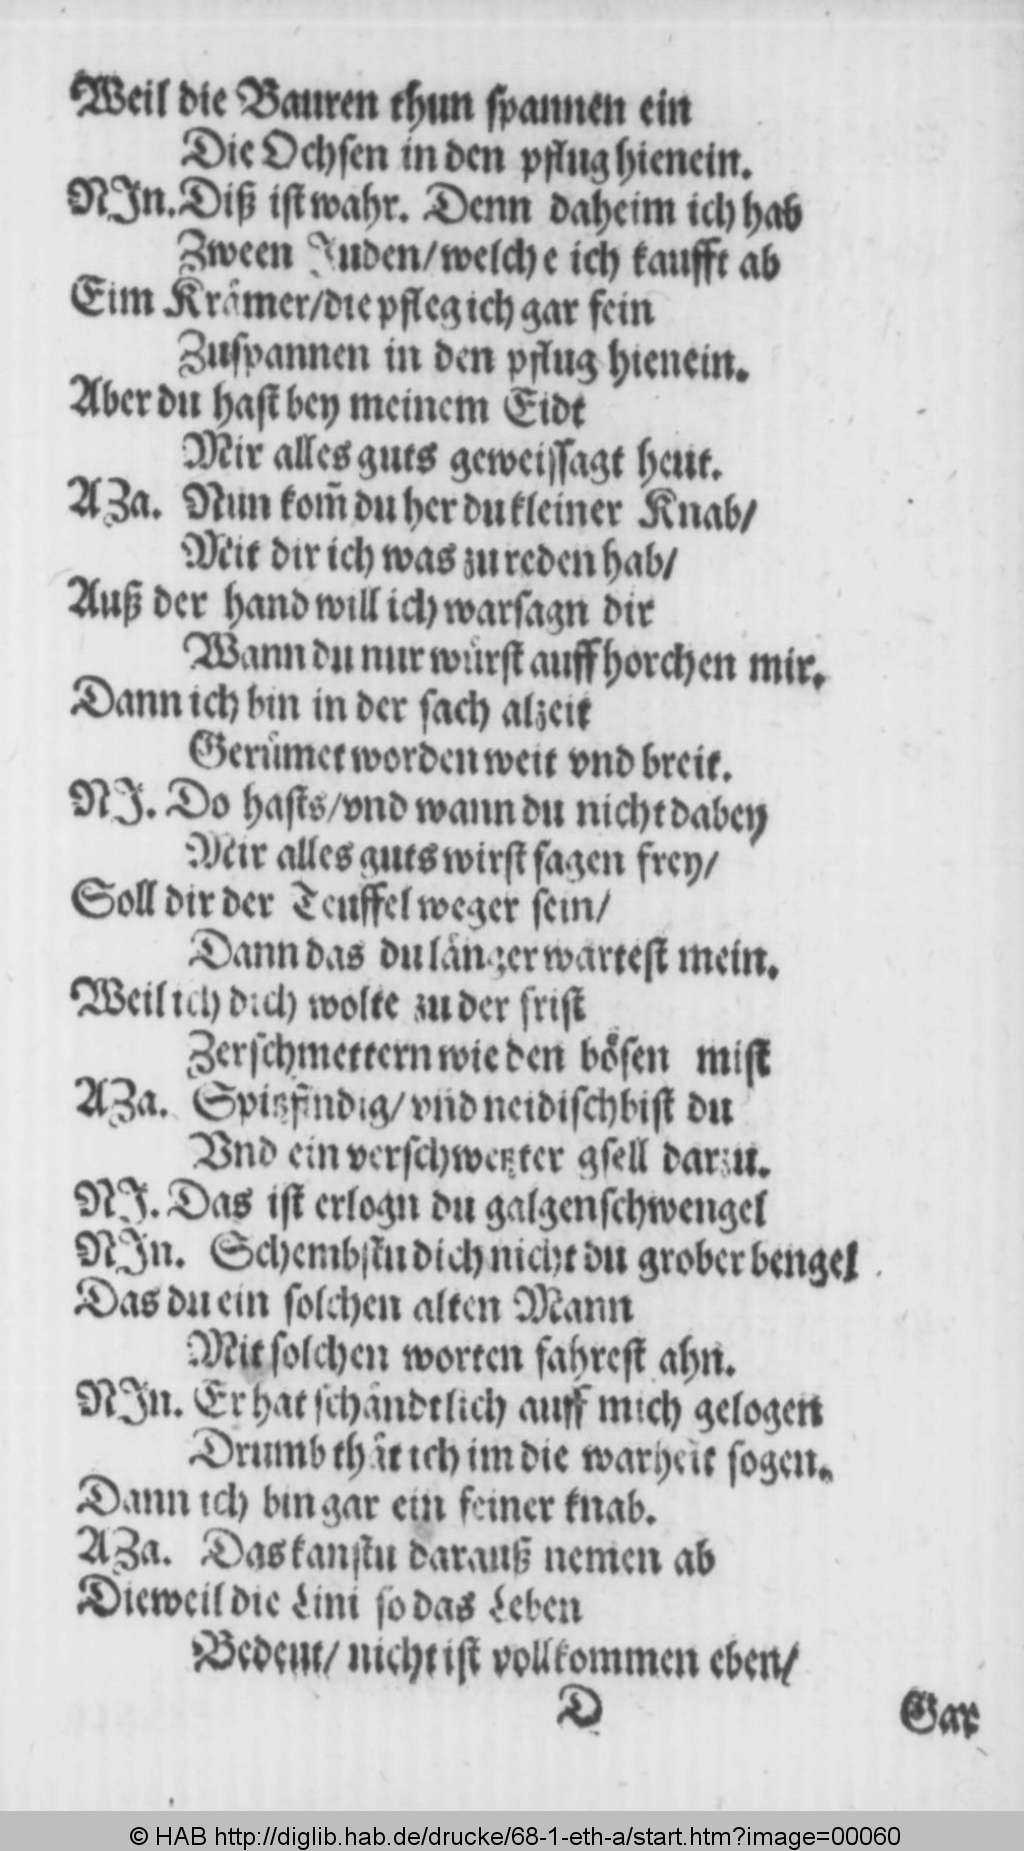 Weil die Bauren thun spannen ein
Die Ochsen in den pflug hienein.
NJn. Diß ist wahr. Denn daheim ich hab
Zween Juden/ welche ich kaufft ab
Eim Krämer/ die pfleg ich gar fein
Zuspannen in den pflug hienein.
Aber du hast bey meinem Eidt
Mir alles guts geweissagt heut.
AZa. Nun kom̃ du her du kleiner Knab/
Mit dir ich was zu reden hab/
Auß der hand will ich warsagn dir
Wann du nur würst auff horchen mir.
Dann ich bin in der sach alzeit
Gerümet worden weit vnd breit.
NJ. Do hasts/ vnd wann du nicht dabey
Mir alles guts wirst sagen frey/
Soll dir der Teuffel weger sein/
Dann das du länger wartest mein.
Weil ich dich wolte zu der frist
Zerschmettern wie den bösen mist
AZa. Spitzfindig/ vnd neidisch bist du
Vnd ein verschwetzter gsell darzu.
NJ. Das ist erlogn du galgenschwengel
NJn. Schembstu dich nicht du grober bengel
Das du ein solchen alten Mann
Mit solchen worten fahrest ahn.
NJn. Er hat schändtlich auff mich gelogen
Drumb thät ich im die warheit sogen.
Dann ich bin gar ein feiner knab.
AZa. Das kanstu darauß nemen ab
Dieweil die Lini so das Leben
Bedeut/ nicht ist vollkommen eben/
D
Gar
© HAB http://diglib.hab.de/drucke/68-1-eth-a/start.htm?image=00060